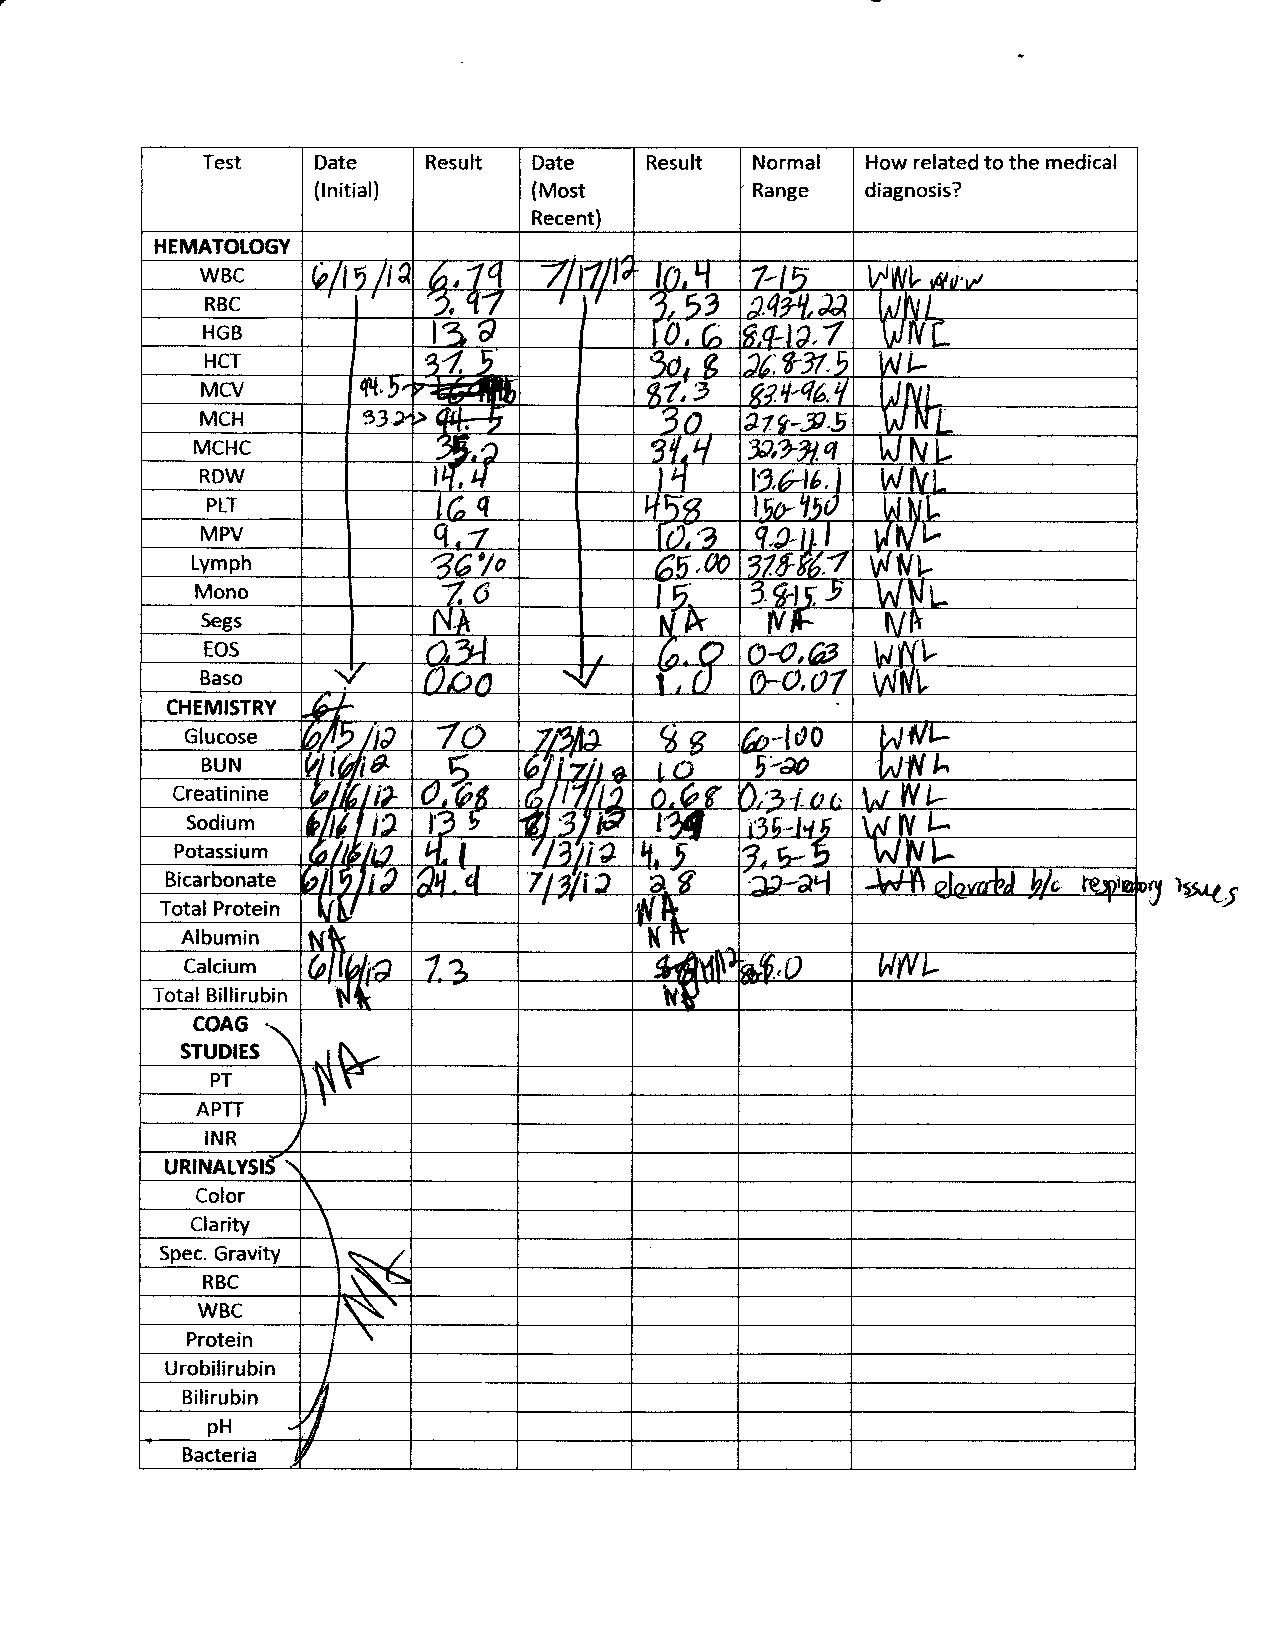 Test Date Result Date Result Normal How related to the medical
(Initial) (Most Range diagnosis?
Recent)
HEMATOLOGY
WBC 6/15/12 6.79 7/17/12 10.4 7-15 WNL
RBC 3.97 3.53 2.93-4.22 WNL
HGB 13.2 10.6 8.9-12.7 WNL
HCT 37.5 30.8 26.8-37.5 WL
MCV 94.5 87.3 83.4-96.4 WNL
MCH 33.2 94.5 30 27.8-32.5 WNL
MCHC 35.2 34.4 32.3-34.9 WNL
RDW 14.4 14 13.6-16.1 WNL
PLT 169 458 150-450 WNL
MPV 9.7 10.3 9.2-11.1 WNL
Lymph 36% 65.00 37.8-86.7 WNL
Mono 7.0 15 3.8-15.5 WNL
Segs NA NA NA NA
EOS 0.34 6.0 0-0.63 WNL
Baso 0.00 1.0 0-0.07 WNL
CHEMISTRY 6/
Glucose 6/15/12 70 7/3/12 88 60-100 WNL
BUN 6/16/12 5 6/17/12 10 5-20 WNL
Creatinine 6/16/12 0.68 6/17/12 0.68 0.3-1.00 WNL
Sodium 6/16/12 135 3/12 139 135-145 WNL
Potassium 6/16/12 4.1 7/3/12 4.5 3.5-5 WNL
Bicarbonate 6/15/12 24.9 7/3/12 28 22-24 elevated b/c respiratory issues
Total Protein NA NA
Albumin NA NA
Calcium 6/16/12 7.3 WNL
Total Billirubin NA NA
COAG
STUDIES NA
PT
APTT
INR
URINALYSIS
Color
Clarity
Spec. Gravity
RBC NA
WBC
Protein
Urobilirubin
Bilirubin
pH
Bacteria